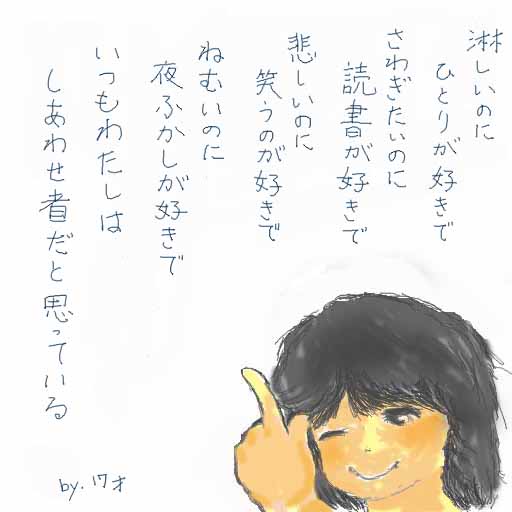 淋しいのに
ひとりが好きで
さわぎたいのに
読書が好きで
悲しいのに
笑うのが好きで
ねむいのに
夜ふかしが好きで
いつもわたしは
しあわせ者だと思っている
by. 17才